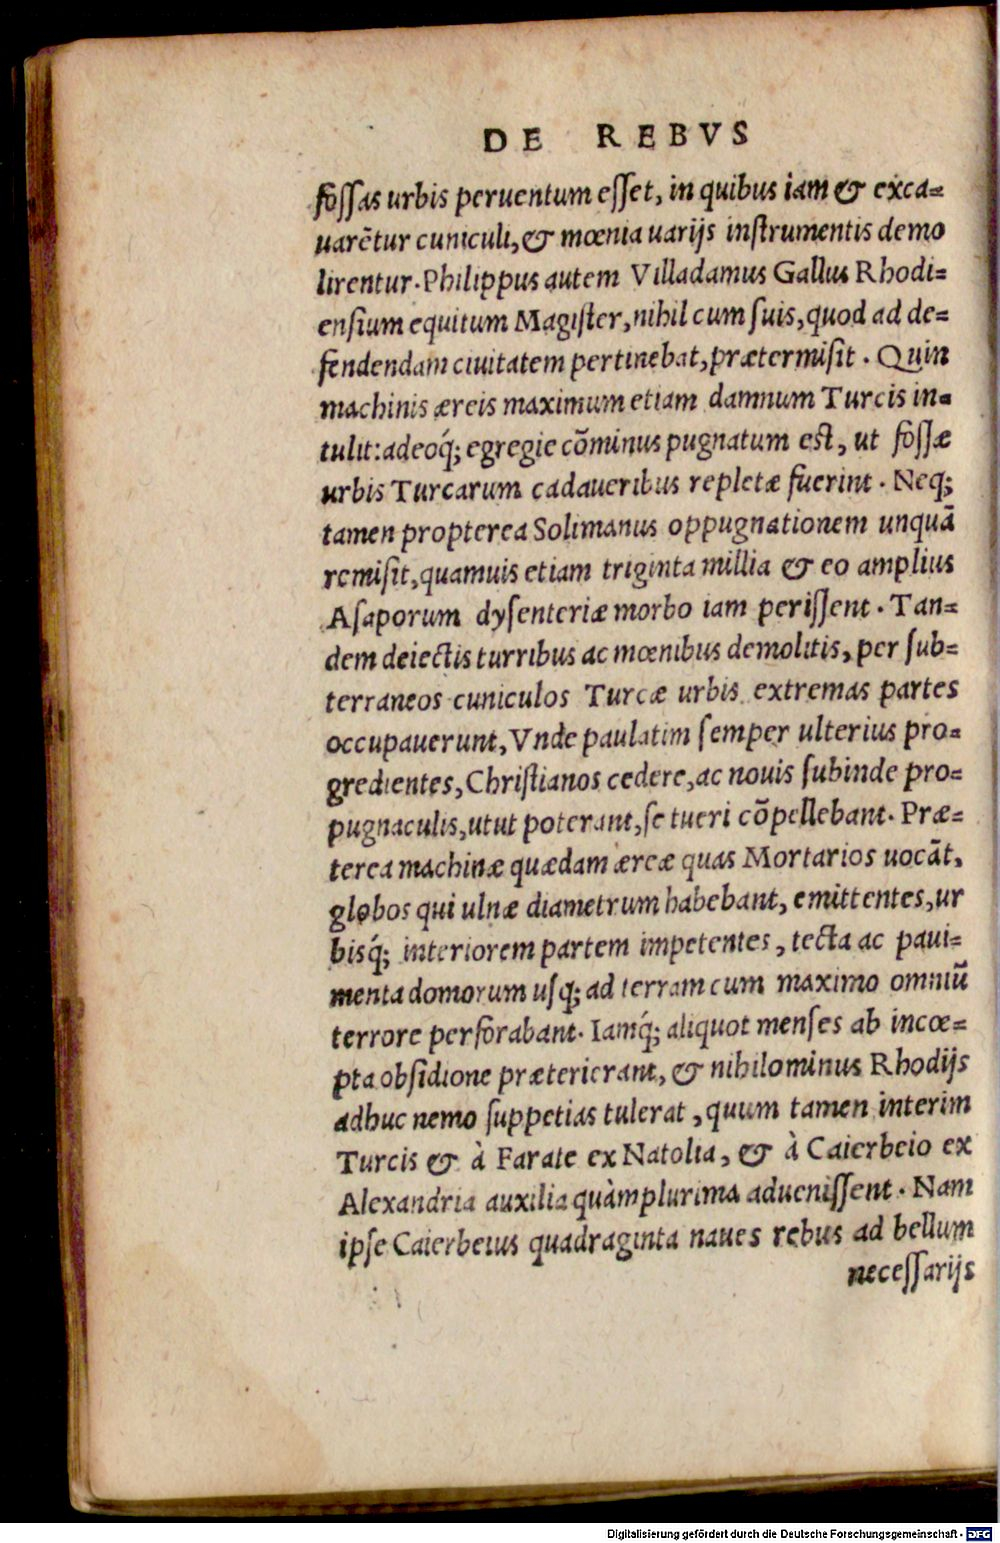 DE REBVS
foſſas urbis peruentum eſſet, in quibus iam & exca=
uarētur cuniculi, & mœnia uarijs inſtrumentis demo
lirentur. Philippus autem Villadamus Gallus Rhodi=
enſium equitum Magiſter, nihil cum ſuis, quod ad de=
fendendam ciuitatem pertinebat, prætermiſit. Quin
machinis æreis maximum etiam damnum Turcis in=
tulit: adeoq́; egregie cōminus pugnatum eſt, ut foſſæ
urbis Turcarum cadaueribus repletæ fuerint. Neq;
tamen propterea Solimanus oppugnationem unquā
remiſit, quamuis etiam triginta millia & eo amplius
Aſaporum dyſenteriæ morbo iam periſſent. Tan=
dem deiectis turribus ac mœnibus demolitis, per ſub=
terraneos cuniculos Turcæ urbis extremas partes
occupauerunt, Vnde paulatim ſemper ulterius pro=
gredientes, Chriſtianos cedere, ac nouis ſubinde pro=
pugnaculis, utut poterant, ſe tueri cōpellebant. Præ=
terea machinæ quædam æreæ quas Mortarios uocāt,
globos qui ulnæ diametrum habebant, emittentes, ur
bisq́; interiorem partem impetentes, tecta ac paui=
menta domorum uſq; ad terram cum maximo omniū
terrore perforabant. Iamq́; aliquot menſes ab incœ=
pta obſidione præterierant, & nihilominus Rhodijs
adhuc nemo ſuppetias tulerat, quum tamen interim
Turcis & à Farate ex Natolia, & à Caierbeio ex
Alexandria auxilia quàmplurima adueniſſent. Nam
ipſe Caierbeius quadraginta naues rebus ad bellum
neceſſarijs
Digitalisierung gefördert durch die Deutsche Forschungsgemeinschaft - DFG